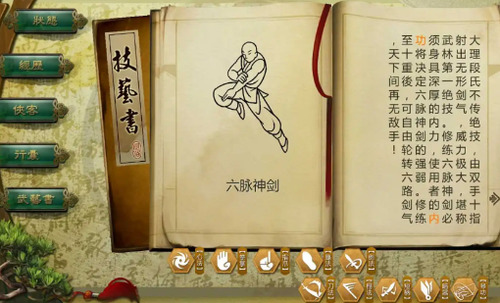 狀態
經歷
侠客
行囊
武藝書
技藝書
六脉神剑
大理段氏不传绝技，由双手十指
射出无形剑气，威力极大，堪称
武林第一绝技。修练六脉神剑必
须身具深厚的内力，使用者的内
功将决定六脉神剑的强弱。修练
至十重後，可自由轮转六路剑气
，天下间再无敌手！